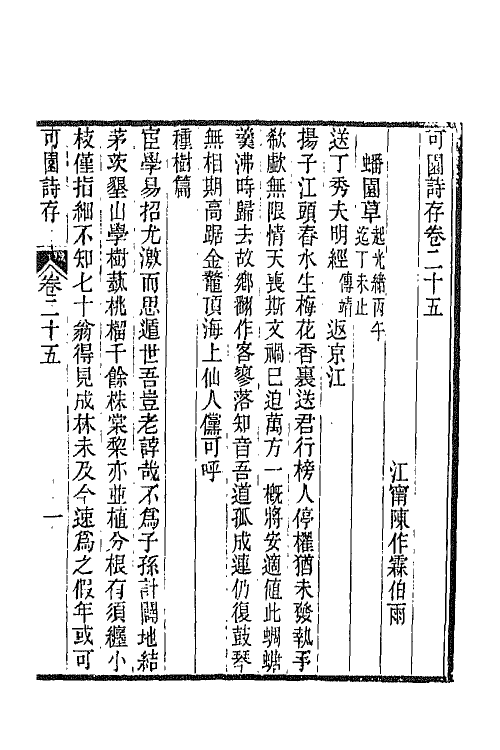 可園詩存卷二十五
江甯陳作霖伯雨
蟠園草起光緒丙午迄丁未止
送丁秀夫明經傳靖返京江
揚子江頭春水生梅花香裏送君行榜人停櫂猶未發執手
欷歔無限情天喪斯文禍已迫萬方一概將安適值此蜩螗
羹沸時歸去故鄉翻作客寥落知音吾道孤成連仍復鼓琴
無相期高踞金鼇頂海上仙人儻可呼
種樹篇
宦學易招尤激而思遁世吾豈老諱哉不爲子孫計闢地結
茅茨墾山學樹蓺桃榴千餘株棠黎亦並植分根有須纏小
枝僅指細不知七十翁得見成林未及今速爲之假年或可
可園詩存
卷二十五
一